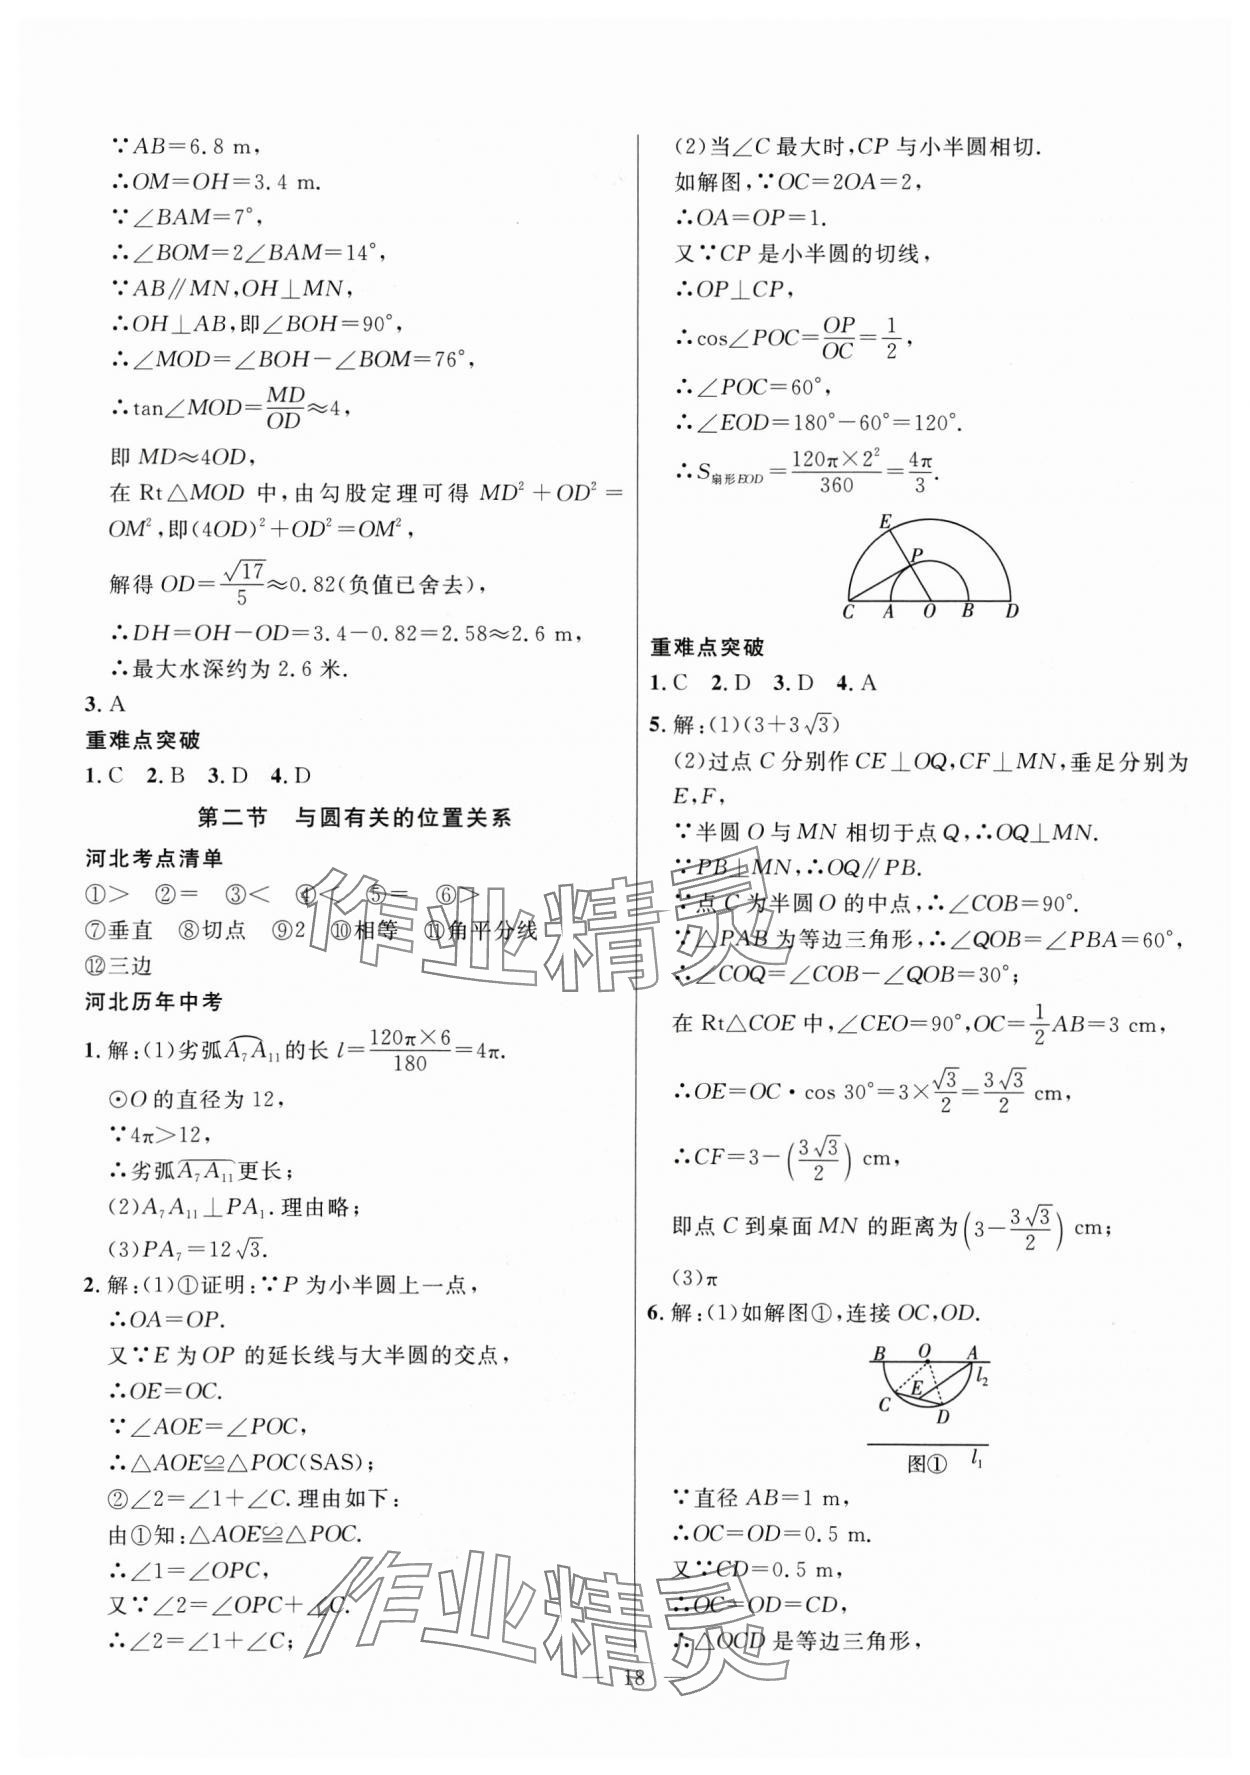 ∵AB=6.8 m,
∴OM=OH=3.4 m.
∵∠BAM=7°,
∴∠BOM=2∠BAM=14°,
∵AB∥MN,OH⊥MN,
∴OH⊥AB,即∠BOH=90°,
∴∠MOD=∠BOH-∠BOM=76°,
∴tan∠MOD=MD/OD≈4,
即 MD≈4OD,
在 Rt△MOD 中,由勾股定理可得 MD²+OD²=
OM²,即(4OD)²+OD²=OM²,
解得 OD=√17/5≈0.82(负值已舍去),
∴DH=OH-OD=3.4-0.82=2.58≈2.6 m,
∴最大水深约为 2.6 米.
3. A
重难点突破
1. C 2. B 3. D 4. D
第二节 与圆有关的位置关系
河北考点清单
①> ②= ③< ④< ⑤= ⑥>
⑦垂直 ⑧切点 ⑨2 ⑩相等 ⑪角平分线
⑫三边
河北历年中考
1. 解:(1)劣弧A₇A₁₁的长 l=120π×6/180=4π.
⊙O 的直径为 12,
∵4π>12,
∴劣弧A₇A₁₁更长;
(2)A₇A₁₁⊥PA₁.理由略;
(3)PA₇=12√3.
2. 解:(1)①证明:∵P 为小半圆上一点,
∴OA=OP.
又∵E 为 OP 的延长线与大半圆的交点,
∴OE=OC.
∵∠AOE=∠POC,
∴△AOE≌△POC(SAS);
②∠2=∠1+∠C.理由如下:
由①知:△AOE≌△POC.
∴∠1=∠OPC,
又∵∠2=∠OPC+∠C.
∴∠2=∠1+∠C;
(2)当∠C 最大时,CP 与小半圆相切.
如解图,∵OC=2OA=2,
∴OA=OP=1.
又∵CP 是小半圆的切线,
∴OP⊥CP,
∴cos∠POC=OP/OC=1/2,
∴∠POC=60°,
∴∠EOD=180°-60°=120°.
∴S扇形EOD=120π×2²/360=4π/3.
E
P
C A O B D
重难点突破
1. C 2. D 3. D 4. A
5. 解:(1)(3+3√3)
(2)过点 C 分别作 CE⊥OQ,CF⊥MN,垂足分别为
E,F,
∵半圆 O 与 MN 相切于点 Q,∴OQ⊥MN.
∵PB⊥MN,∴OQ∥PB.
∵点 C 为半圆 O 的中点,∴∠COB=90°.
∵△PAB 为等边三角形,∴∠QOB=∠PBA=60°,
∴∠COQ=∠COB-∠QOB=30°;
在 Rt△COE 中,∠CEO=90°,OC=1/2AB=3 cm,
∴OE=OC·cos 30°=3×√3/2=3√3/2 cm,
∴CF=3-(3√3/2) cm,
即点 C 到桌面 MN 的距离为(3-3√3/2) cm;
(3)π
6. 解:(1)如解图①,连接 OC,OD.
B O A
l₂
C E
D
图① l₁
∵直径 AB=1 m,
∴OC=OD=0.5 m.
又∵CD=0.5 m,
∴OC=OD=CD,
∴△OCD 是等边三角形,
— 18 —
作业精灵
作业精灵